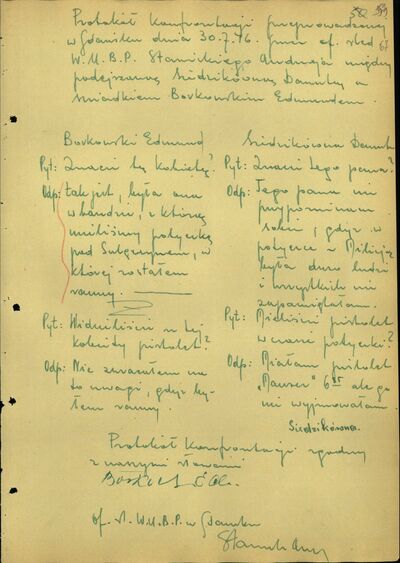 Protokół konfrontacji przeprowadzonej
w Gdańsku dnia 30.7.46. przez of. śled
67
W.U.B.P. Stawickiego Andrzeja między
podejrzaną Siedzikówną Danutą a
świadkiem Borkowskim Edmundem.
Borkowski Edmund
Pyt: Znacie tą kobietę?
Odp: tak jest, była ona
w bandzie, z którą
mieliśmy potyczkę
pod Sulęczynem, w
której zostałem
ranny.
Pyt: Widzieliście u tej
kobiety pistolet?
Odp: Nie zwracałem na
to uwagi, gdyż by-
łem ranny.
Siedzikówna Danuta
Pyt: Znacie tego pana?
Odp: Tego pana nie
przypominam
sobie, gdyż w
potyczce z Milicją
była dużo ludzi
i wszystkich nie
zapamiętałam.
Pyt: Mieliście pistolet
w czasie potyczki?
Odp: Miałam pistolet
"Mauser" 6³⁵ ale go
nie wyjmowałam.
Siedzikówna.
Protokół konfrontacji zgodny
z naszymi słowami
of. śl. W.U.B.P. w Gdańsku